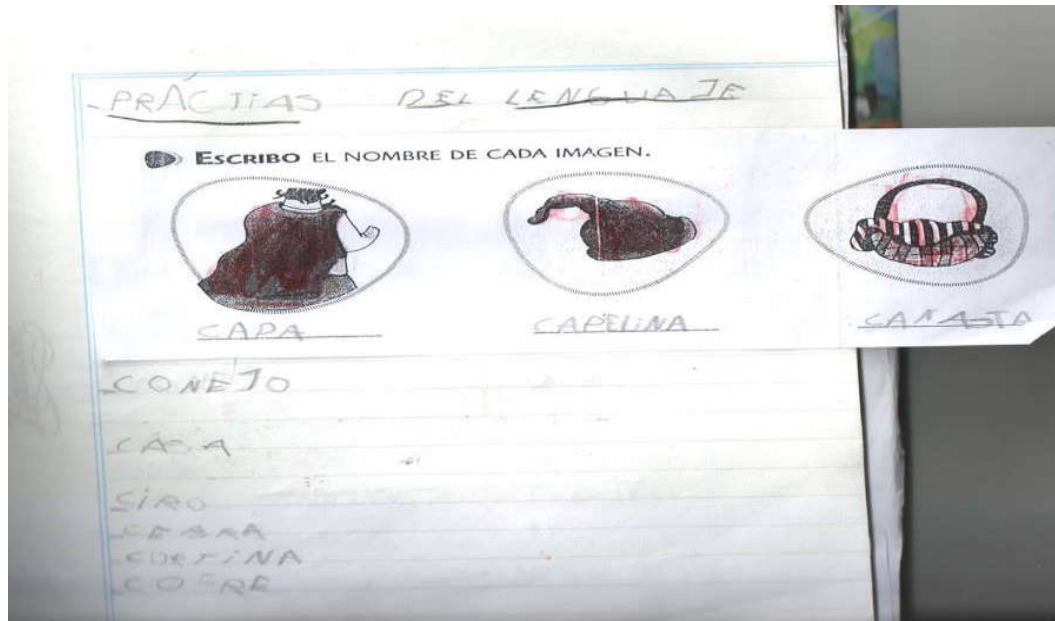 PRÁCTIAS DEL LENGUAJE
ESCRIBO EL NOMBRE DE CADA IMAGEN.
CAPA CAPELINA CANASTA
CONEJO
CASA
SIRO
CEBRA
CORTINA
COFRE